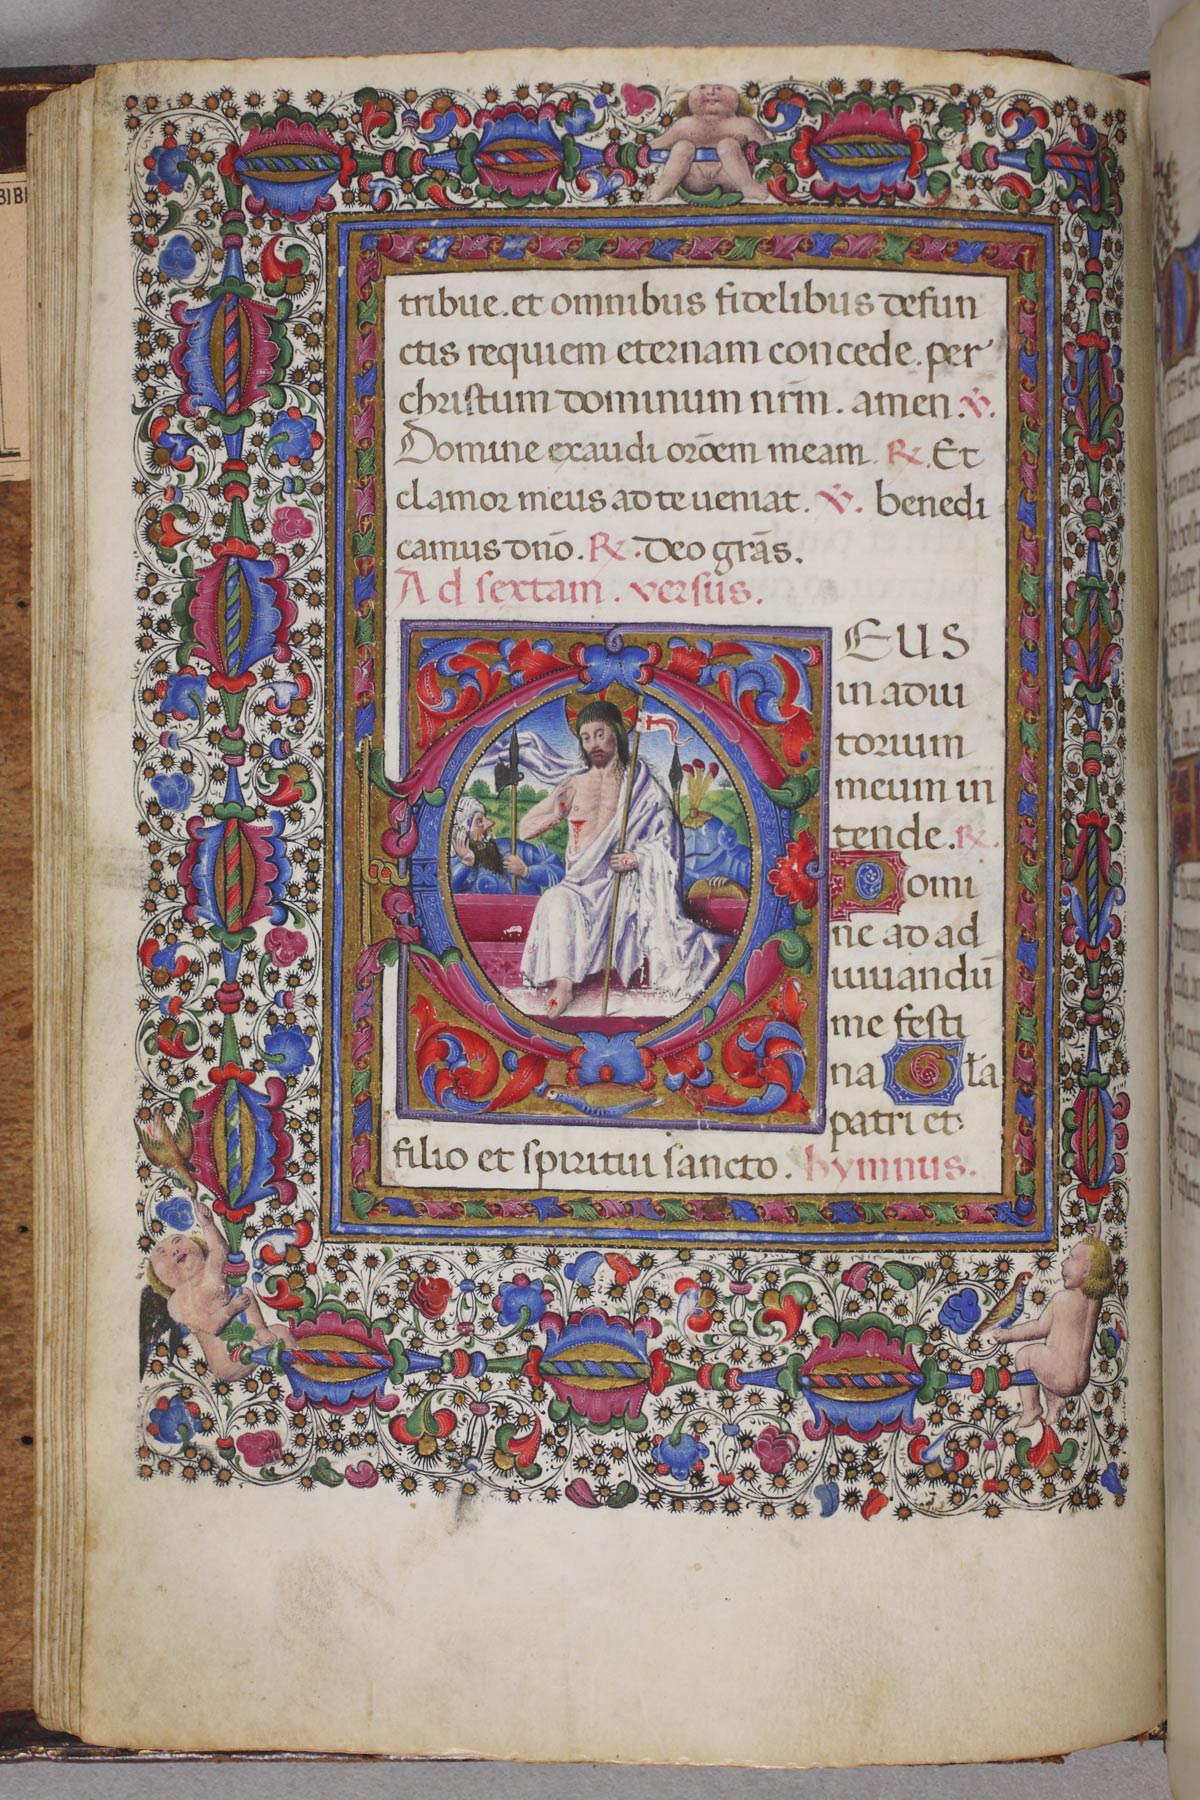 BIBI
tribue. et omnibus fidelibus defun
ctis requiem eternam concede. per
christum dominum nr̄m. amen. ℣.
Domine exaudi orōem meam. ℟. Et
clamor meus ad te veniat. ℣. benedi
camus dn̄o. ℟. Deo grās.
Ad sextam. versus.
DEUS
in adiu
torium
meum in
tende. ℟.
Domi
ne ad ad
iuuandū
me festi
na Gl̄a
patri et
filio et spiritui sancto. hymnus.